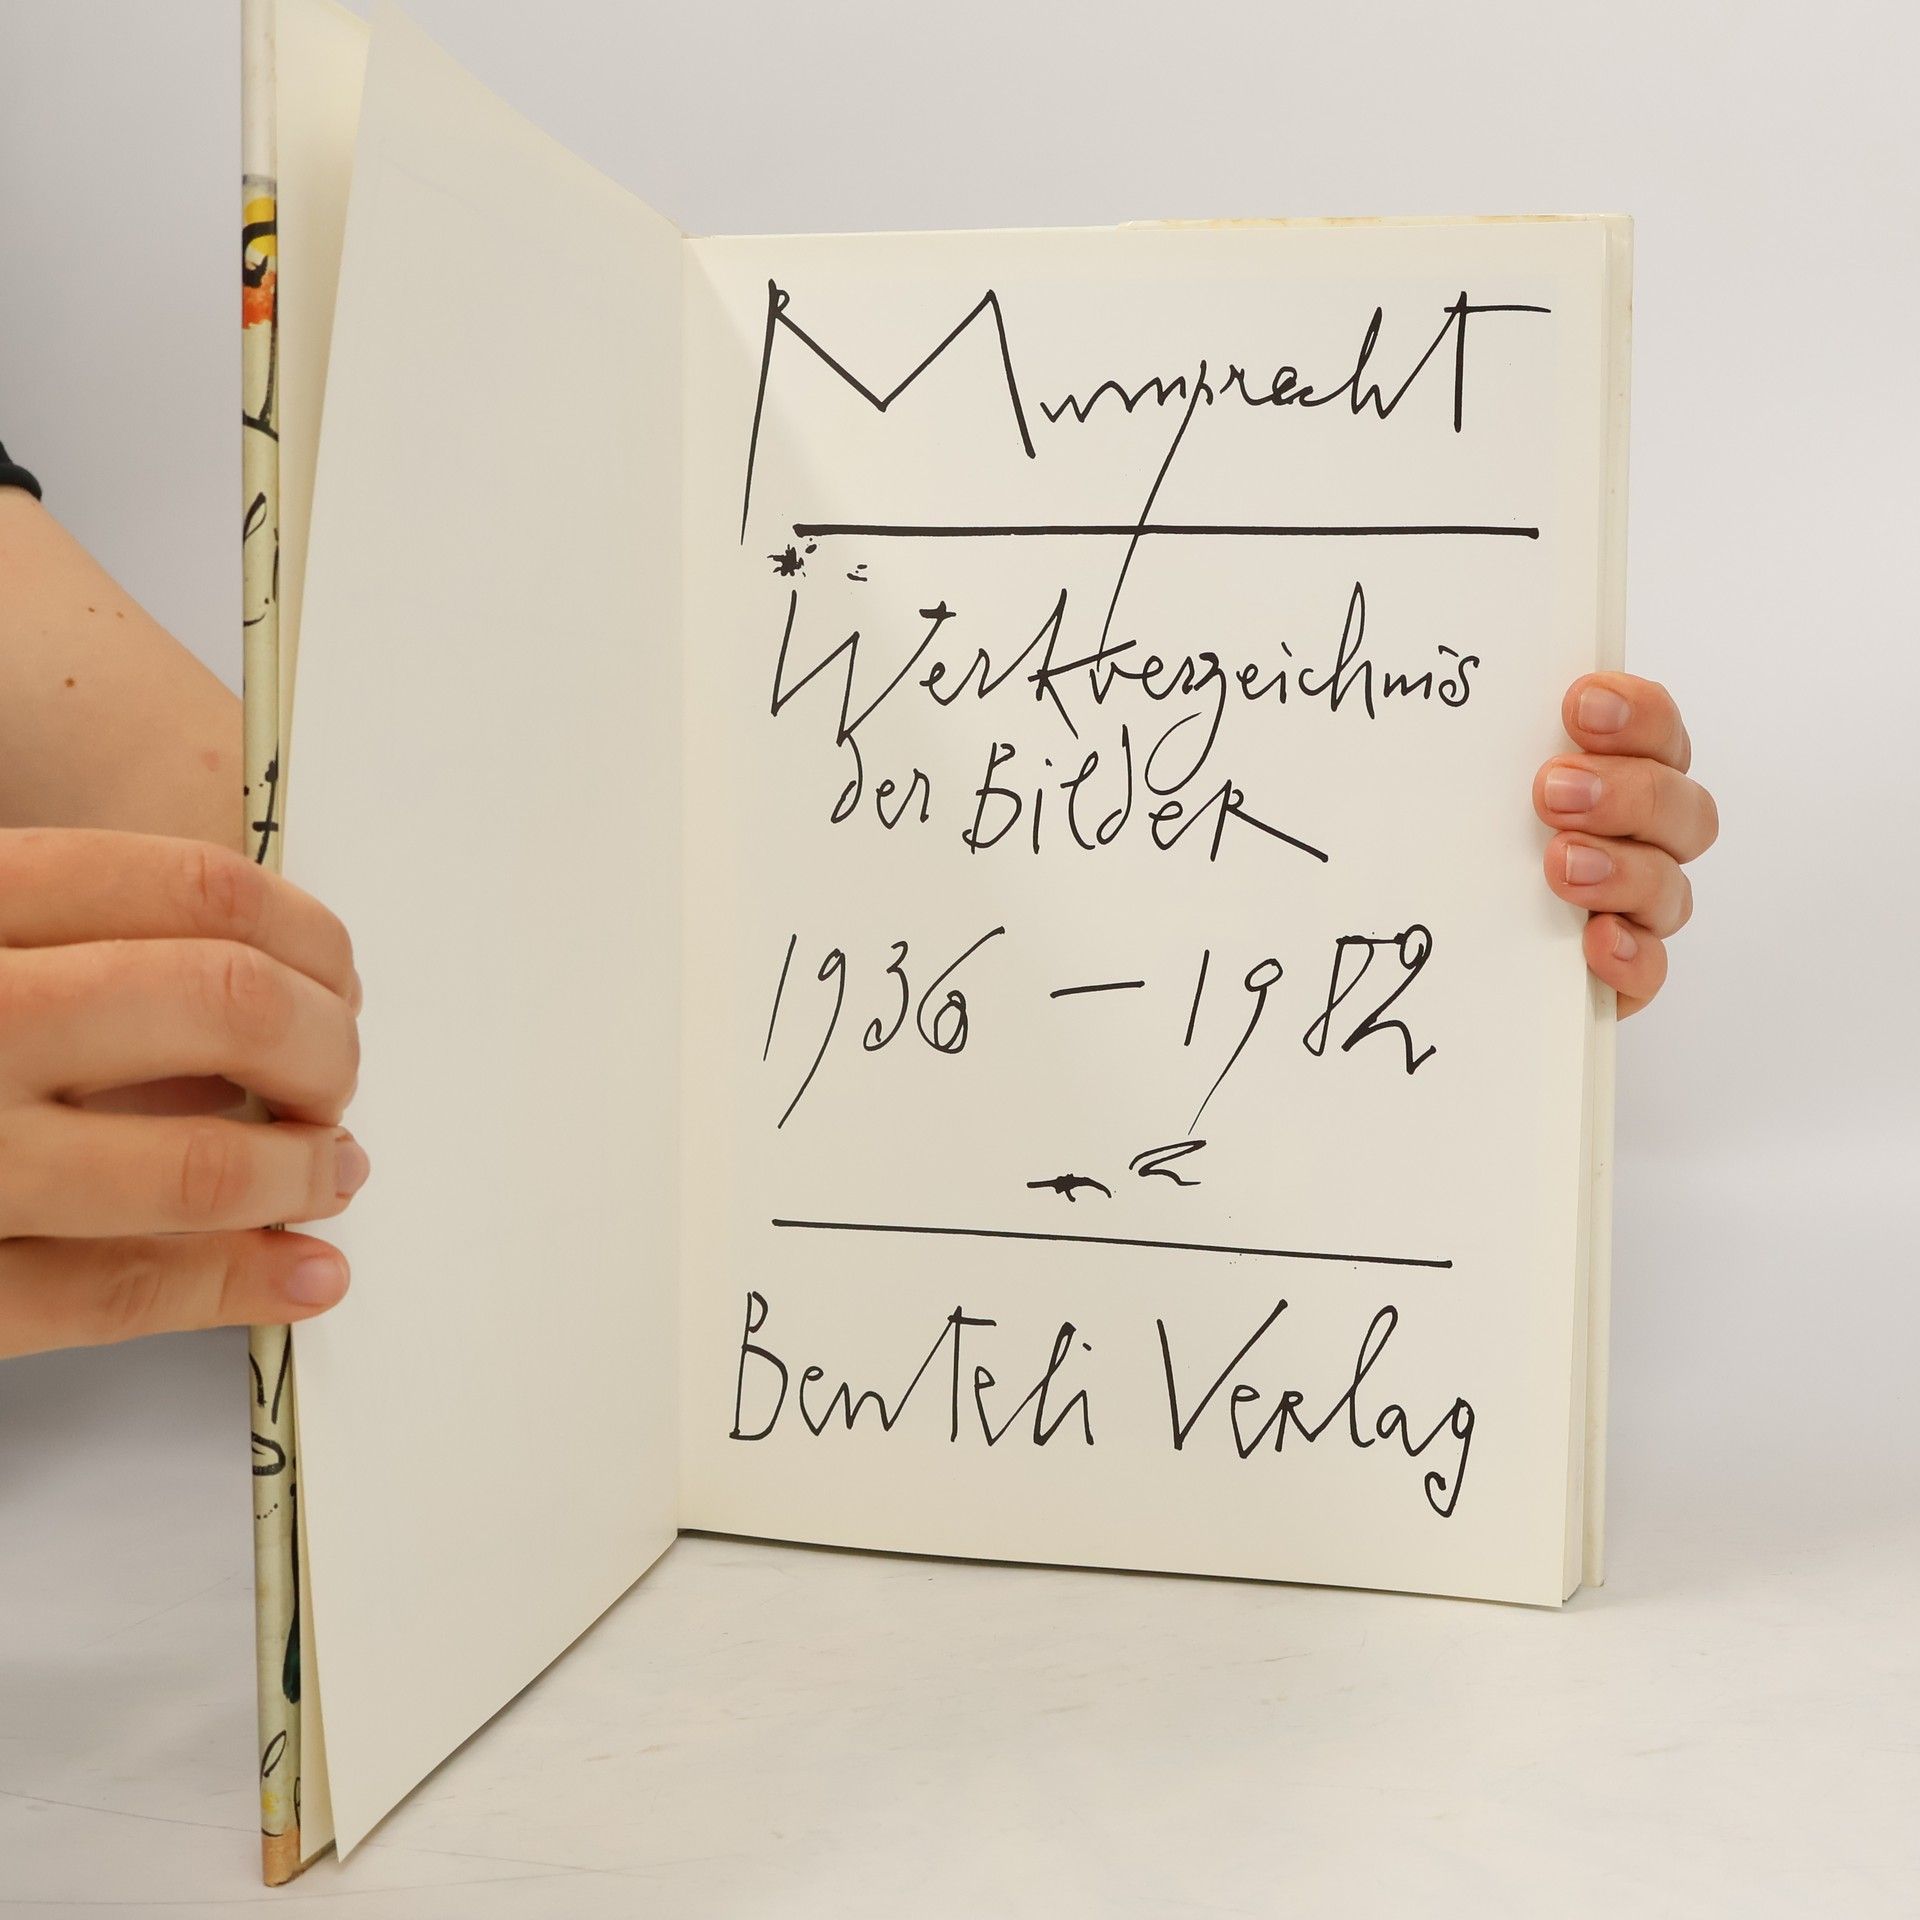 Mumprecht
Werkverzeichnis
der Bilder
1936 - 1982
Benteli Verlag